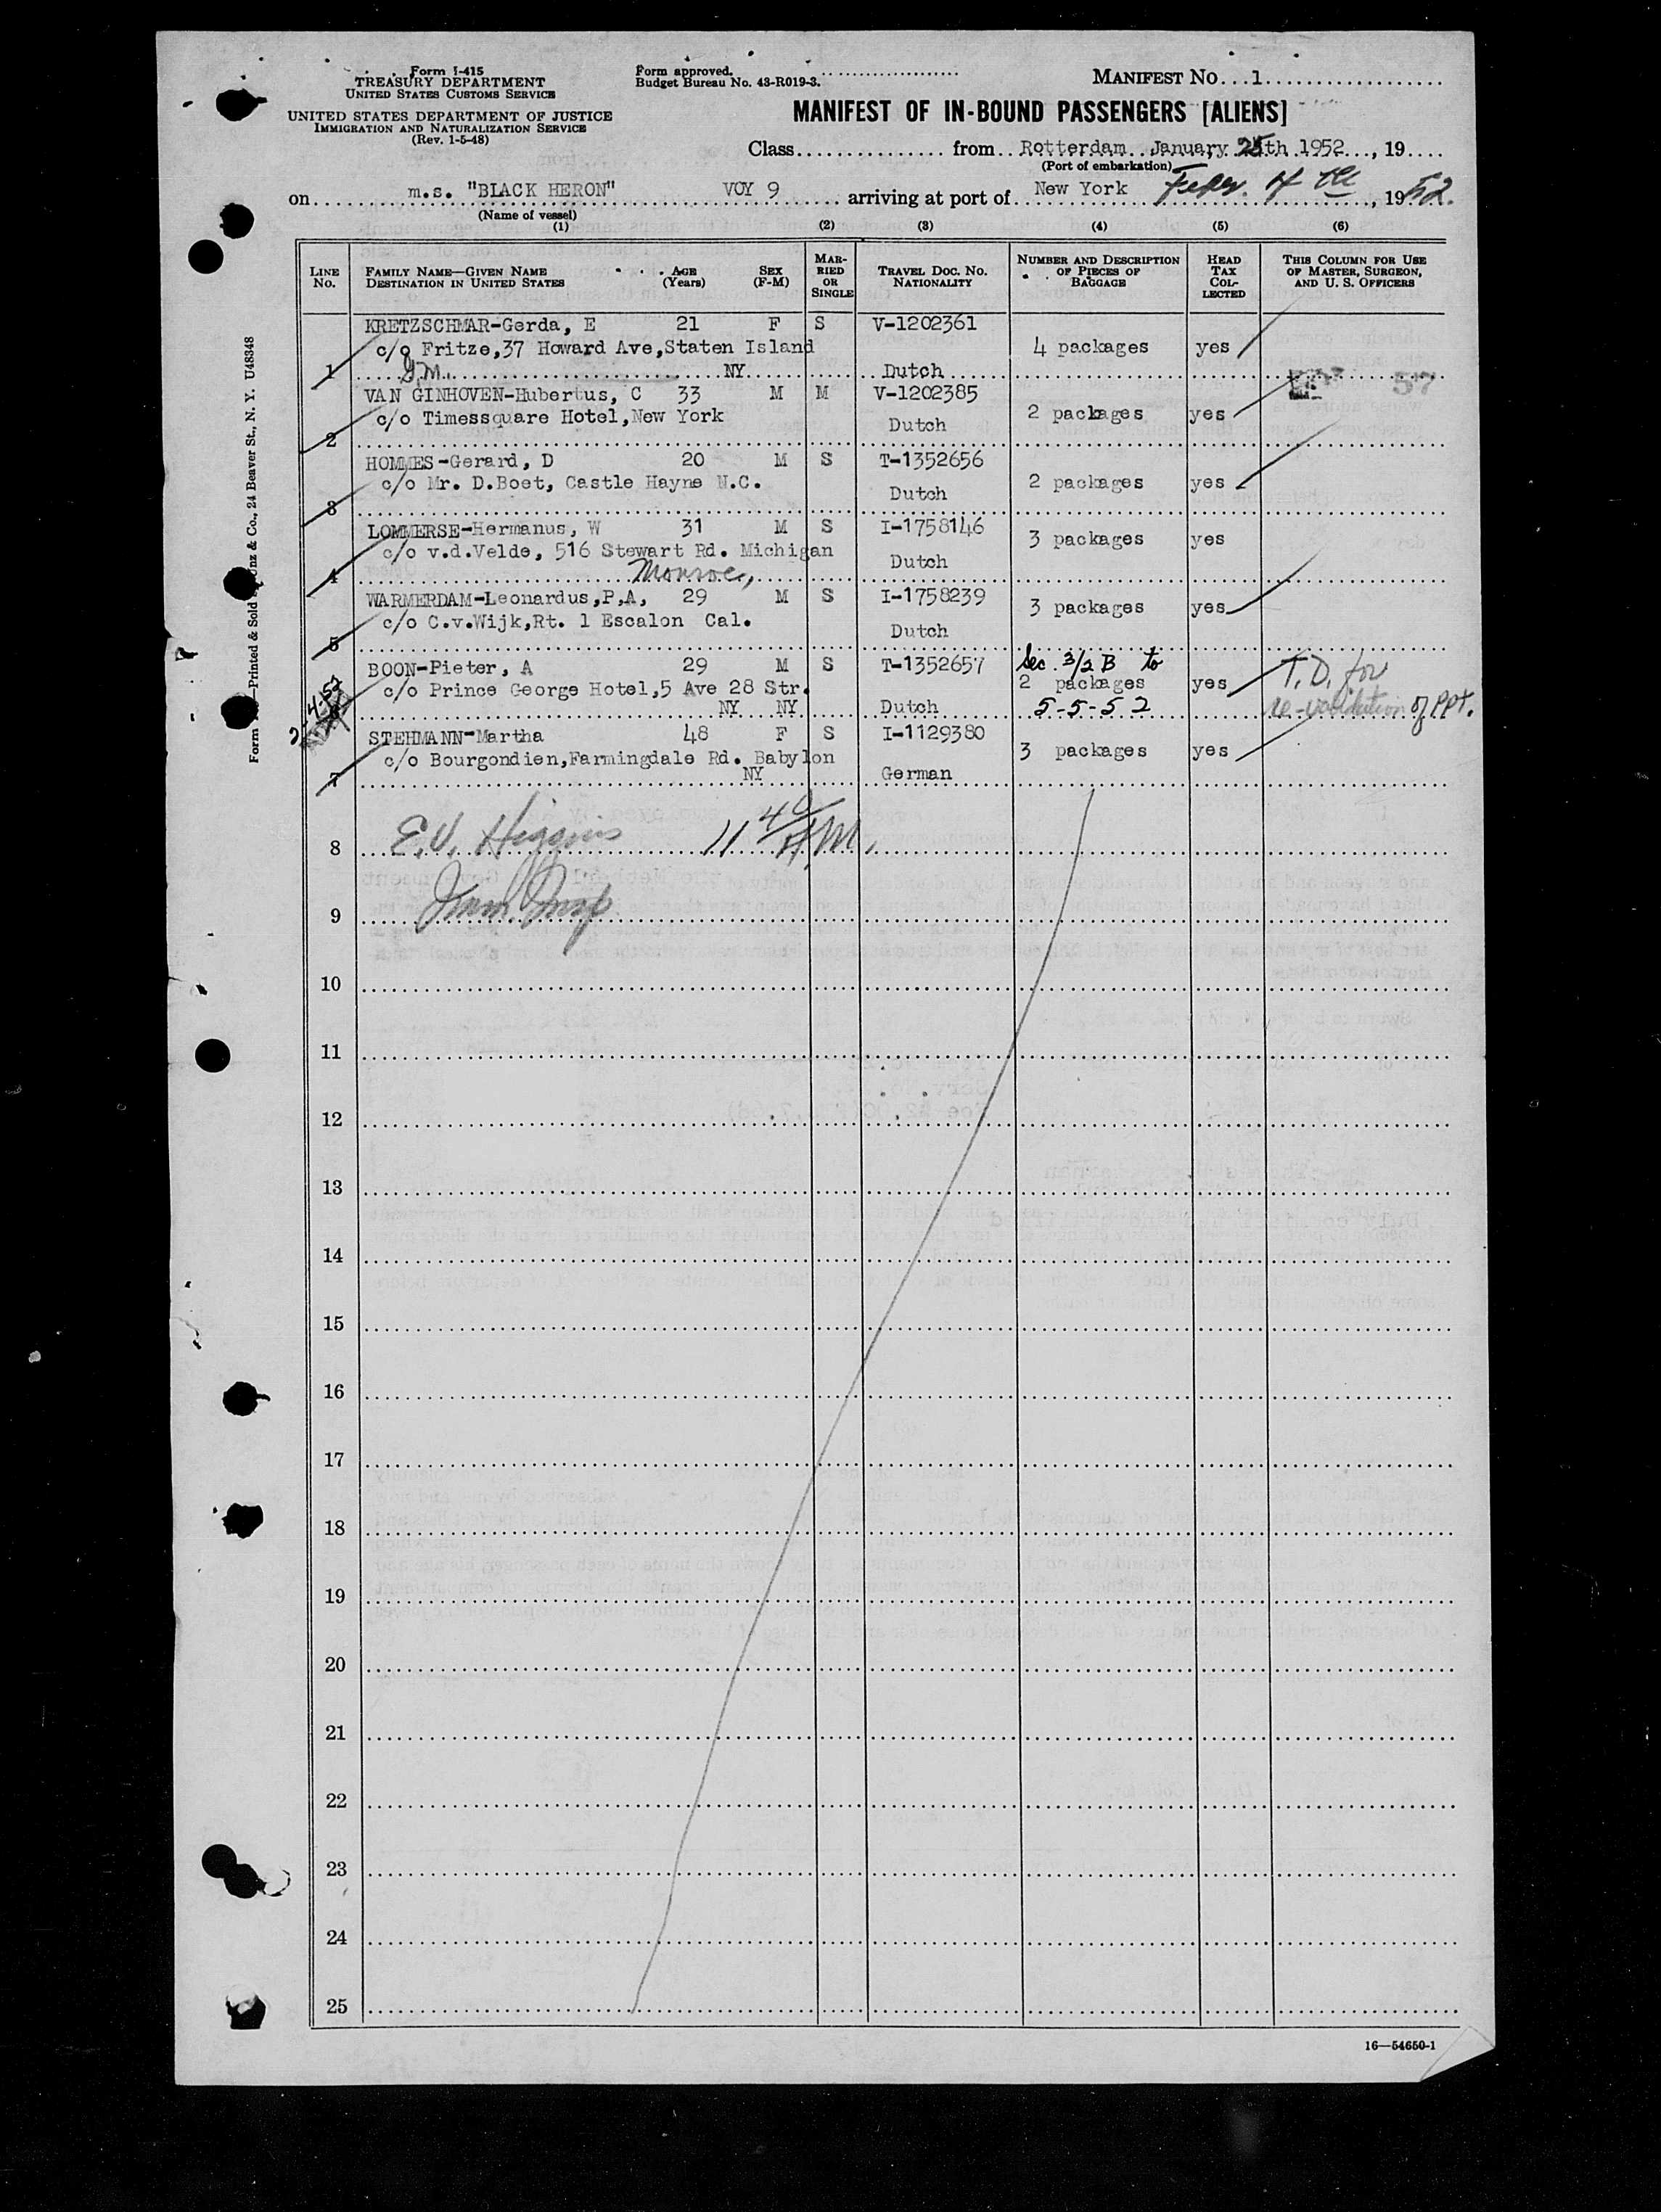 Form I-415
TREASURY DEPARTMENT
UNITED STATES CUSTOMS SERVICE
UNITED STATES DEPARTMENT OF JUSTICE
IMMIGRATION AND NATURALIZATION SERVICE
(Rev. 1-5-48)
Form approved.
Budget Bureau No. 43-R019-3.
MANIFEST NO. 1
MANIFEST OF IN-BOUND PASSENGERS [ALIENS]
Class from Rotterdam January 25th 1952, 19
(Port of embarkation)
on m.s. "BLACK HERON" VOY 9 arriving at port of New York Febr. 4 th, 1952.
(Name of vessel)
(1) (2) (3) (4) (5) (6)
LINE NO. FAMILY NAME—GIVEN NAME DESTINATION IN UNITED STATES AGE (Years) SEX (F-M) MARRIED OR SINGLE TRAVEL DOC. NO. NATIONALITY NUMBER AND DESCRIPTION OF PIECES OF BAGGAGE HEAD TAX COLLECTED THIS COLUMN FOR USE OF MASTER, SURGEON, AND U. S. OFFICERS
KRETZSCHMAR-Gerda, E 21 F S V-1202361
c/o Fritze,37 Howard Ave,Staten Island 4 packages yes
1 NY Dutch
VAN GINHOVEN-Hubertus, C 33 M M V-1202385 57
c/o Timessquare Hotel,New York 2 packages yes
2 Dutch
HOMMES-Gerard, D 20 M S T-1352656
c/o Mr. D.Boet, Castle Hayne N.C. 2 packages yes
3 Dutch
LOMMERSE-Hermanus, W 31 M S I-1758146
c/o v.d.Velde, 516 Stewart Rd. Michigan 3 packages yes
4 Monroe, Dutch
WARMERDAM-Leonardus,P,A, 29 M S I-1758239
c/o C.v.Wijk,Rt. 1 Escalon Cal. 3 packages yes
5 Dutch
BOON-Pieter, A 29 M S T-1352657 Sec. 3/2 B to T.D. for
c/o Prince George Hotel,5 Ave 28 Str. 2 packages yes
NY NY Dutch 5-5-52 re-validation of PPt.
STEHMANN-Martha 48 F S I-1129380
c/o Bourgondien,Farmingdale Rd. Babylon 3 packages yes
7 NY German
8 E.V. Higgins 11 40 AM,
9 Imm. Insp
10
11
12
13
14
15
16
17
18
19
20
21
22
23
24
25
16—54650-1
Printed & Sold Unz & Co., 24 Beaver St., N. Y. U48348